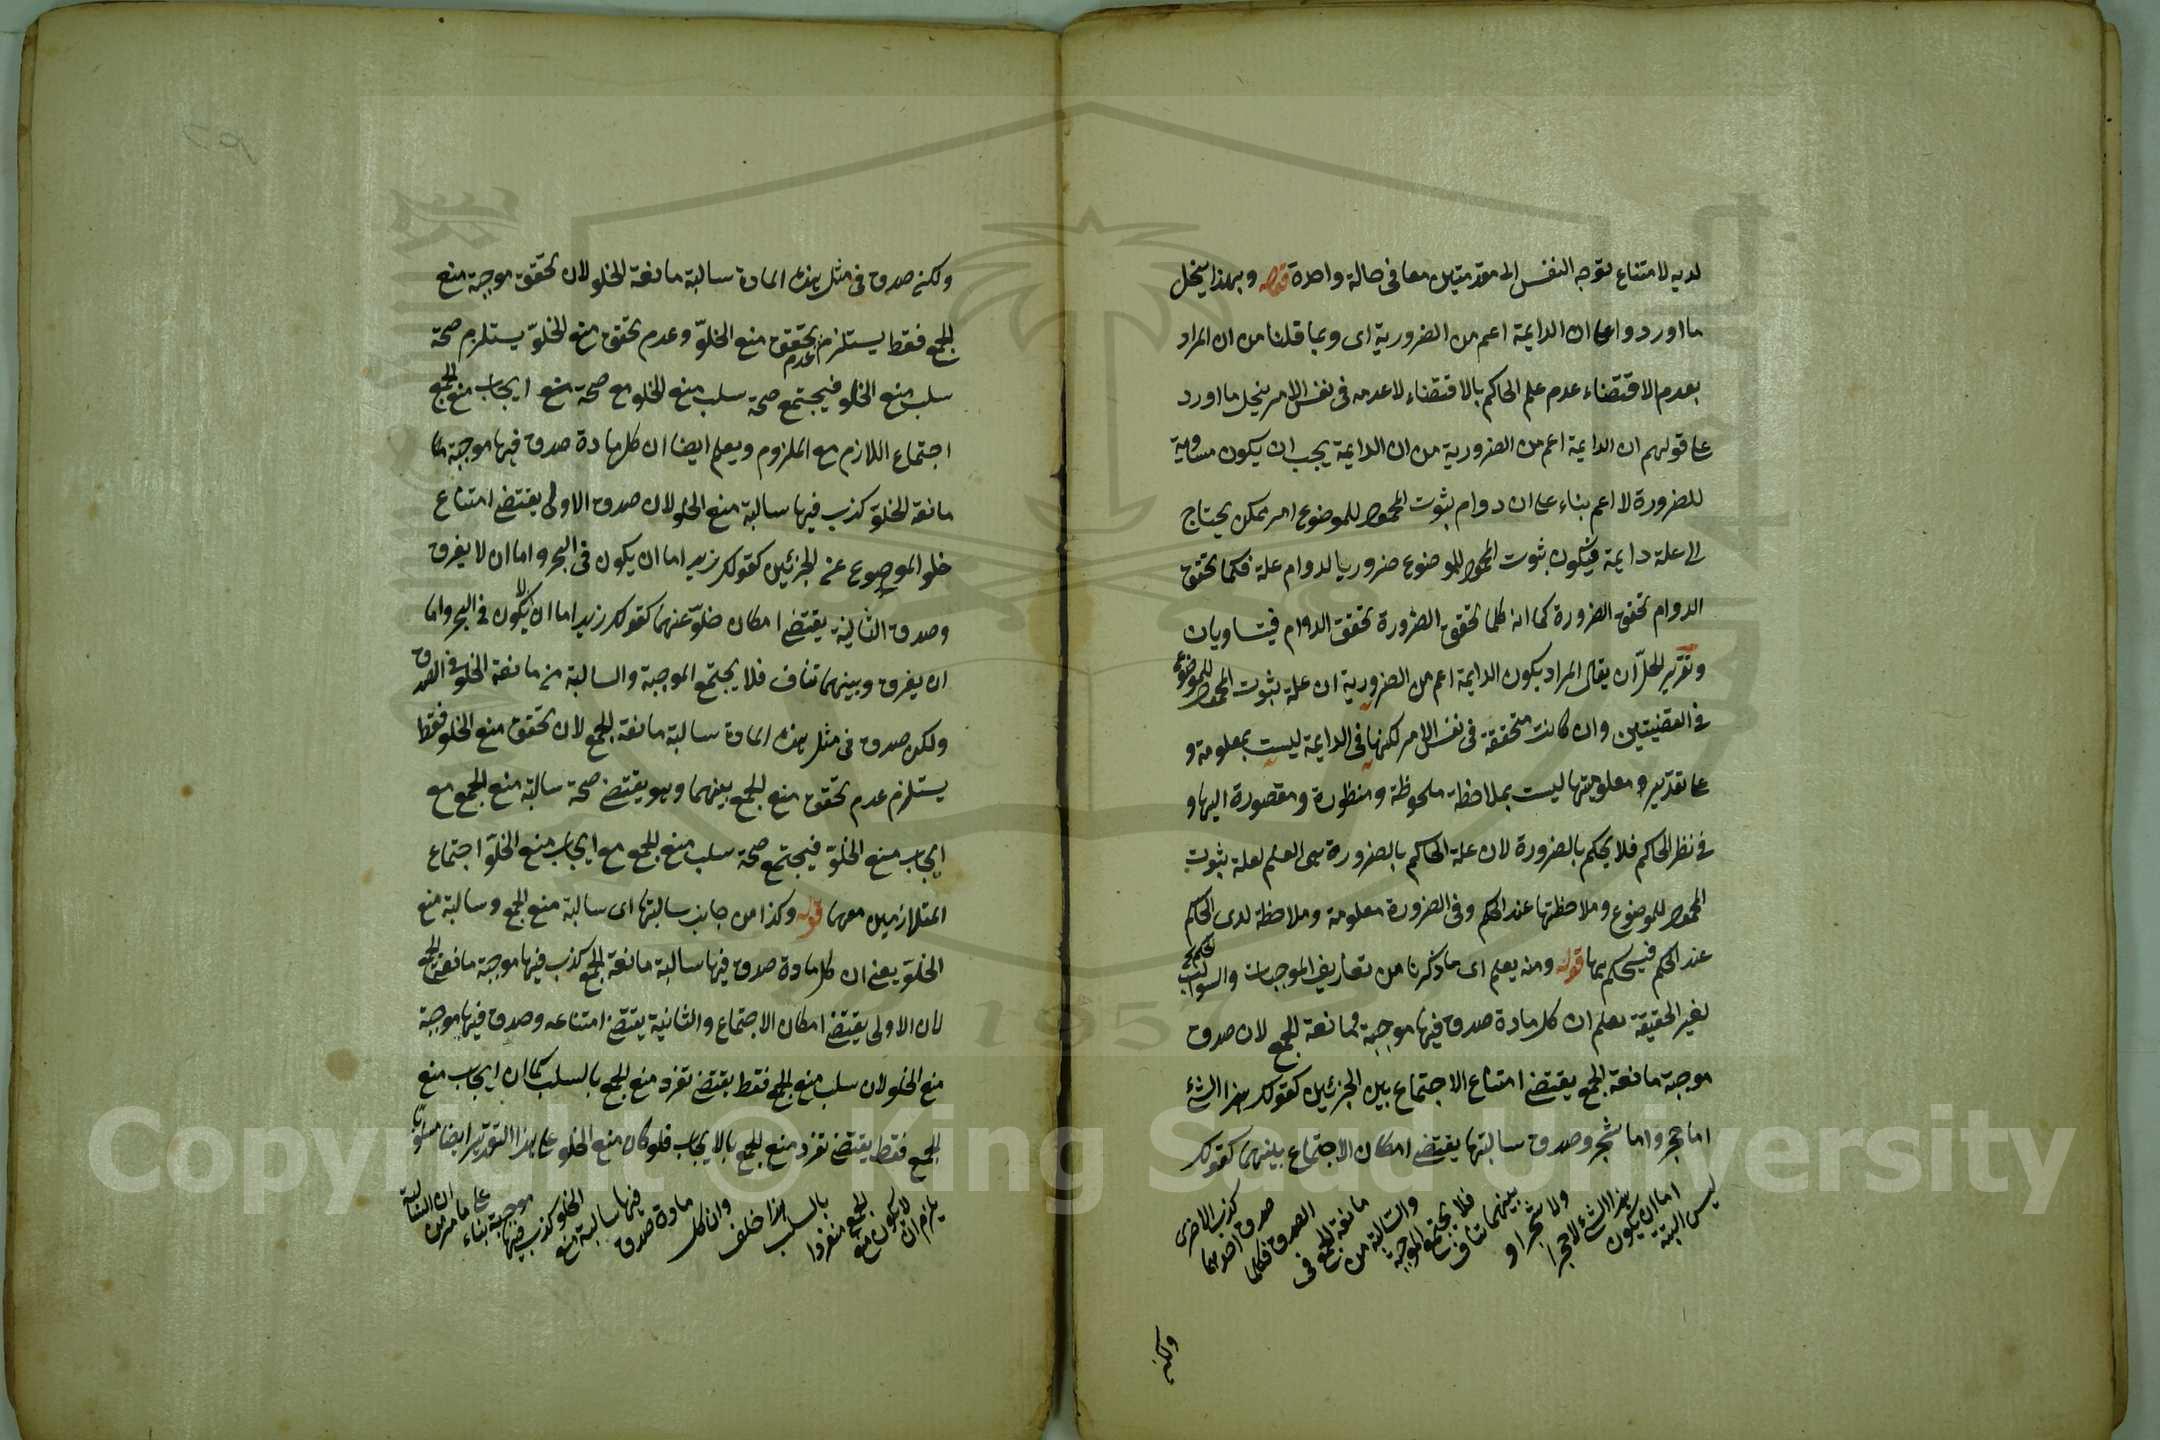 لديه لامتناع توجه النفس الى مقدمتين معا في حالة واحدة قوله وبهذا ينحل
ما اوردوا على ان الدايمة اعم من الضرورية اى وبما قلنا من ان المراد
بعدم الاقتضاء عدم علم الحاكم بالاقتضاء لا عدمه فى نفس الامر ينحل ما اورد
على قولهم ان الدايمة اعم من الضرورية من ان الدايمة يجب ان يكون مساوية
للضرورة لا اعم بناء على ان دوام ثبوت المحمول للموضوع امر ممكن يحتاج
الى علة دايمة فيكون ثبوت المحمول للموضوع ضروريا لدوام علة فكما تحقق
الدوام تحقق الضرورة كما انه كلما تحقق الضرورة تحقق الدوام فيتساويان
وتقرير الحل ان يقال المراد بكون الدايمة اعم من الضرورية ان علة ثبوت المحمول للموضوع
فى القضيتين وان كانت متحققة فى نفس الامر لكنها فى الدايمة ليست بمعلومة و
على تقدير معلوميتها ليست بملاحظة ملحوظة ومنظورة ومقصورة اليها و
فى نظر الحاكم فلا يحكم بالضرورة لان علة الحاكم بالضرورة هى العلم لعلة ثبوت
المحمول للموضوع وملاحظتها عند الحكم وفى الضرورة معلومة وملاحظة لدى الحاكم
عند الحكم فيحكم بها قوله ومنه يعلم اى ما ذكرنا من تعاريف الموجبات والسوالب
لغير الحقيقة يعلم ان كل مادة صدق فيها موجبة مانعة الجمع لان صدق
موجبة مانعة الجمع يقتضى امتناع الاجتماع بين الجزئين كقولك هذا الشئ
اما حجر واما شجر وصدق سالبتها يقتضى امكان الاجتماع بينهما كقولك
ليس البتة اما ان يكون هذا الشئ لا حجرا ولا شجرا و بينهما تناف فلا يجتمع الموجبة والسالبة من مانعة الجمع فى الصدق فكلما صدق احديهما كذب الاخرى
ولكنه
ولكنه صدق فى مثل هذه المادة سالبة مانعة الخلو لان تحقق موجبة منع
الجمع فقط يستلزم عدم تحقق منع الخلو وعدم تحقق منع الخلو يستلزم صحة
سلب منع الخلو فيجتمع صحة سلب منع الخلو مع صحة منع ايجاب منع الجمع
اجتماع اللازم مع الملزوم ويعلم ايضا ان كل مادة صدق فيها موجبة
مانعة الخلو كذب فيها سالبة منع الخلو لان صدق الاولى يقتضى امتناع
خلو الموضوع عن الجزئين كقولك زيد اما ان يكون فى البحر واما ان لا يغرق
وصدق الثانية يقتضى امكان خلو عنهما كقولك زيد اما ان لا يكون فى البحر واما
ان يغرق وبينهما تناف فلا يجتمع الموجبة والسالبة من مانعة الخلو فى الصدق
ولكن صدق فى مثل هذه المادة سالبة مانعة الجمع لان تحقق منع الخلو فقط
يستلزم عدم تحقق منع الجمع بينهما وهو يقتضى صحة سالبة منع الجمع مع
ايجاب منع الخلو فيجتمع صحة سلب منع الجمع مع ايجاب منع الخلو اجتماع
المتلازمين معهما قوله وكذا من جانب سالبتها اى سالبة منع الجمع وسالبة منع
الخلو يعنى ان كل مادة صدق فيها سالبة مانعة الجمع كذب فيها موجبة مانعة الجمع
لان الاولى يقتضى امكان الاجتماع والثانية يقتضى امتناعه وصدق فيها موجبة
منع الخلو لان سلب منع الجمع فقط يقتضى تفرد منع الجمع بالسلب كما ان ايجاب منع
الجمع فقط يقتضى تفرد منع الجمع بالايجاب فلو كان منع الخلو على هذا التقدير ايضا مسلوبا
يلزم ان لا يكون منع الجمع منفردا بالسلب هذا خلف وان كل مادة صدق فيها سالبة منع الخلو كذب فيها موجبة بناء على ما مر من ان السالبة
Copyright © King Saud University
1957